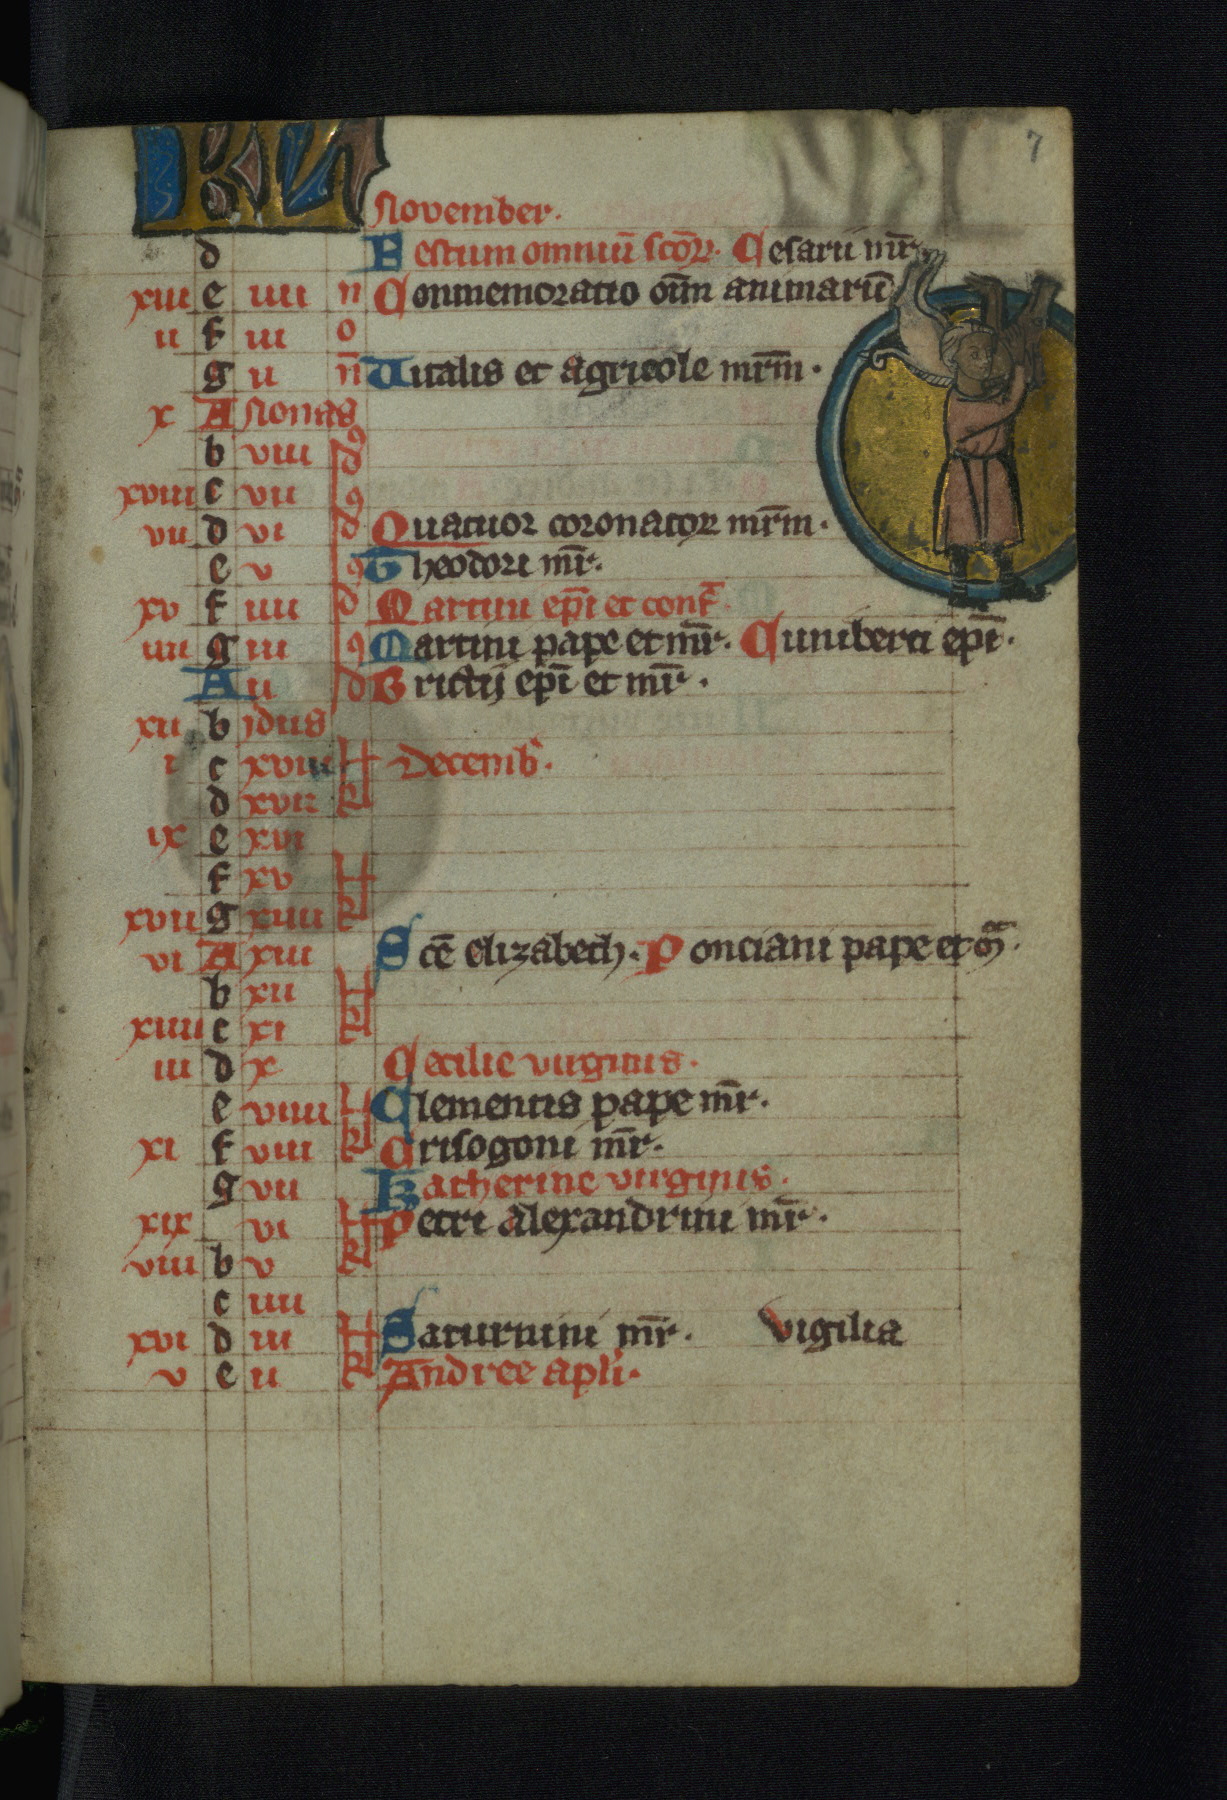 7
KL
november.
d Festum omniū scōꝝ. Cesarii mr̄.
xiii e iiii n Conmemoratio om̄n animarū
ii f iii o
g ii n̄ Vitalis et agricole mr̄m.
x A nonas
b viii id
xviii c vii 9
vii d vi d Quatuor coronatoꝝ mr̄m.
e v 9 Theodori mr̄.
xv f iiii d Martini ep̄i et conf̄.
iiii g iii 9 Martini pape et mr̄. Cuniberti ep̄i.
A ii d Brictij ep̄i et mr̄.
xii b idus
i c xviii kl decemb̉.
d xvii
ix e xvi
f xv kl
xvii g xiiii
vi A xiii Scē elizabeth. Ponciani pape et m̄.
b xii kl
xiiii c xi
iii d x Cecilie virginis.
e viiii kl Clementis pape mr̄.
xi f viii Crisogoni mr̄.
g vii Katherine virginis.
xix vi kl Petri Alexandrini mr̄.
viii b v
c iiii
xvi d iii kl Saturnini mr̄. vigilia
v e ii Andree apl̄i.